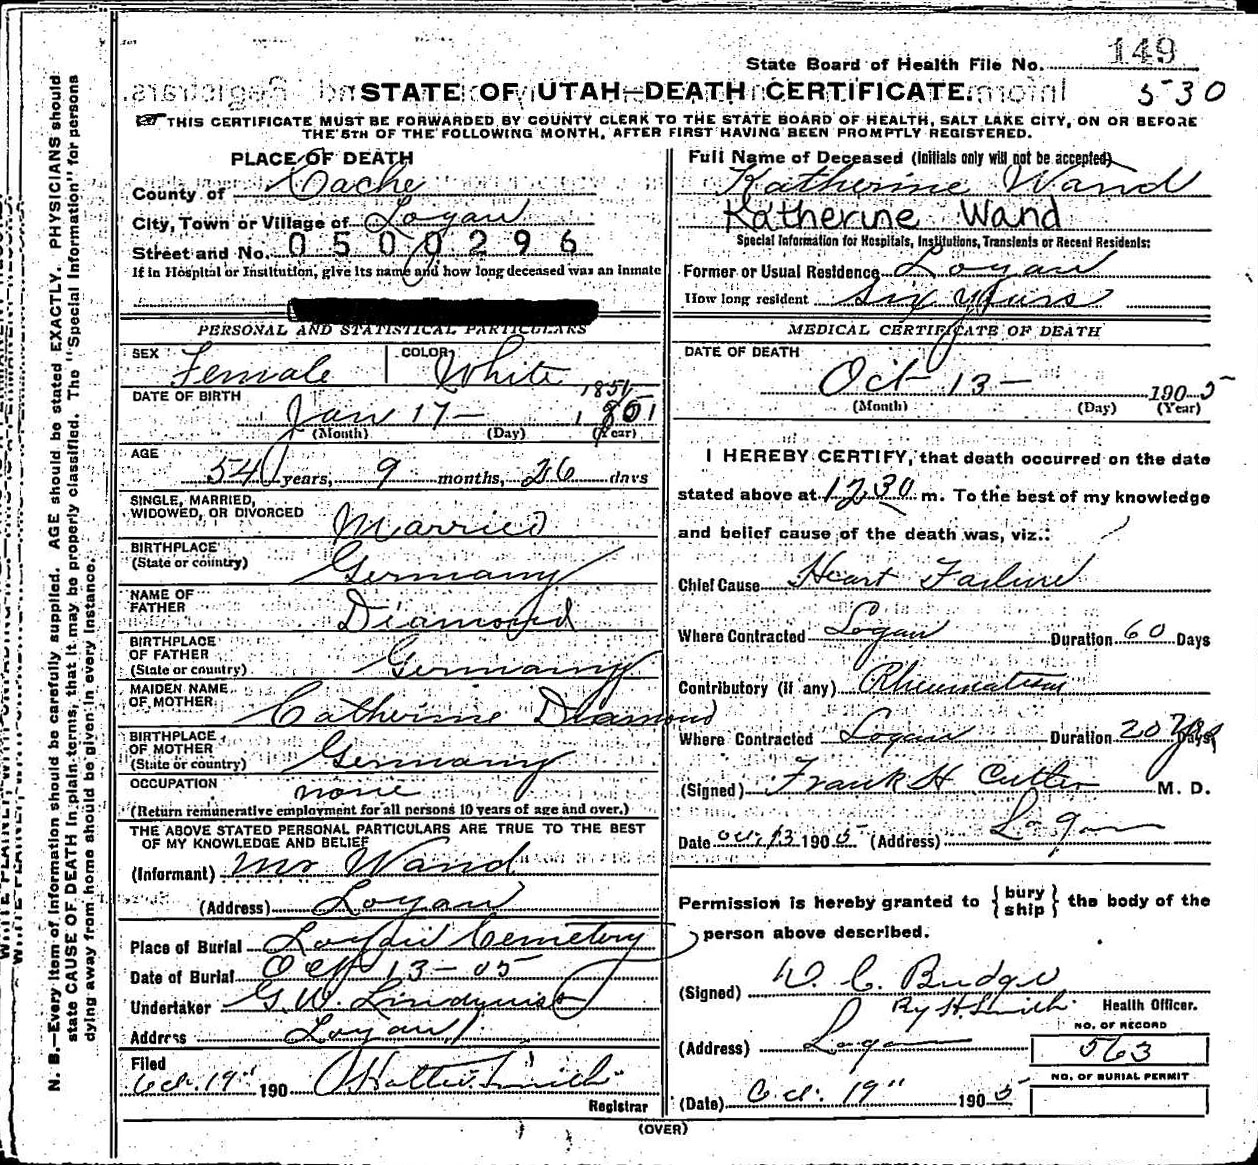 149
State Board of Health File No.
STATE OF UTAH—DEATH CERTIFICATE.
530
THIS CERTIFICATE MUST BE FORWARDED BY COUNTY CLERK TO THE STATE BOARD OF HEALTH, SALT LAKE CITY, ON OR BEFORE
THE 5TH OF THE FOLLOWING MONTH, AFTER FIRST HAVING BEEN PROMPTLY REGISTERED.
N. B.—Every item of information should be carefully supplied. AGE should be stated EXACTLY. PHYSICIANS should
state CAUSE OF DEATH in plain terms, that it may be properly classified. The "Special Information" for persons
dying away from home should be given in every instance.
PLACE OF DEATH
County of Cache
City, Town or Village of Logan
Street and No. 0500296
If in Hospital or Institution, give its name and how long deceased was an inmate
PERSONAL AND STATISTICAL PARTICULARS
SEX Female COLOR White
DATE OF BIRTH 1851
Jan 17— 1851
(Month) (Day) (Year)
AGE
54 years, 9 months, 26 days
SINGLE, MARRIED,
WIDOWED, OR DIVORCED Married
BIRTHPLACE
(State or country) Germany
NAME OF
FATHER Diamond
BIRTHPLACE
OF FATHER
(State or country) Germany
MAIDEN NAME
OF MOTHER Catherine Diamond
BIRTHPLACE
OF MOTHER
(State or country) Germany
OCCUPATION none
(Return remunerative employment for all persons 10 years of age and over.)
THE ABOVE STATED PERSONAL PARTICULARS ARE TRUE TO THE BEST
OF MY KNOWLEDGE AND BELIEF
(Informant) Mr Wand
(Address) Logan
Place of Burial Logan Cemetery
Date of Burial Oct 13-05
Undertaker G.W. Lindquist
Address Logan
Filed
Oct. 19" 190 Smith
Registrar
Full Name of Deceased (Initials only will not be accepted)
Katherine Wand
Katherine Wand
Special Information for Hospitals, Institutions, Transients or Recent Residents:
Former or Usual Residence Logan
How long resident Six years
MEDICAL CERTIFICATE OF DEATH
DATE OF DEATH
Oct 13— 1905
(Month) (Day) (Year)
I HEREBY CERTIFY, that death occurred on the date
stated above at 1230 m. To the best of my knowledge
and belief cause of the death was, viz.:
Chief Cause Heart Failure
Where Contracted Logan Duration 60 Days
Contributory (if any) Rheumatism
Where Contracted Logan Duration 20 Yrs Days
(Signed) Frank H Cutler M. D.
Date Oct, 13 1905 (Address) Logan
Permission is hereby granted to { bury ship } the body of the
person above described.
(Signed) W. C. Budge
By H Smith Health Officer.
(Address) Logan
NO. OF RECORD
563
NO. OF BURIAL PERMIT
(Date) Oct. 19" 1905
(OVER)